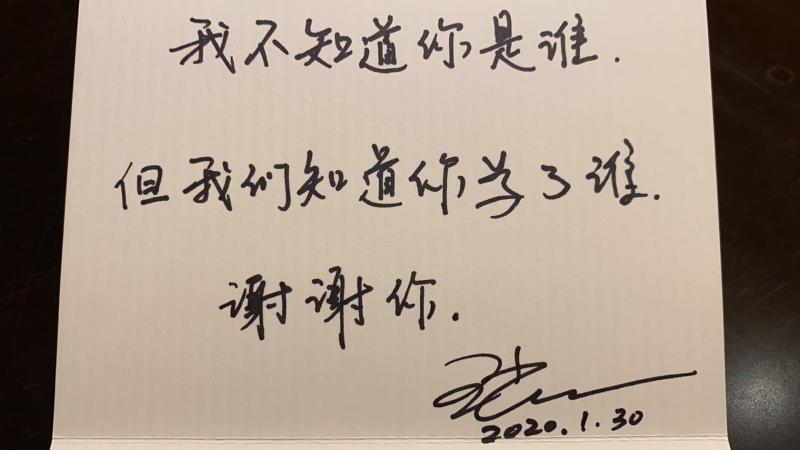 我不知道你是谁.
但我们知道你为了谁.
谢谢你.
2020.1.30